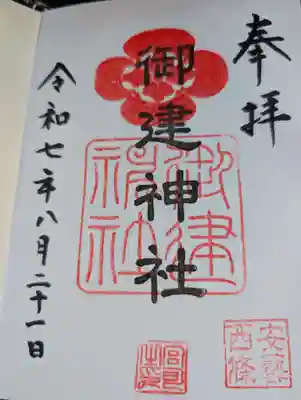 奉拝
御建神社
御建神社
安藝西條
宮司之印
令和七年八月二十一日